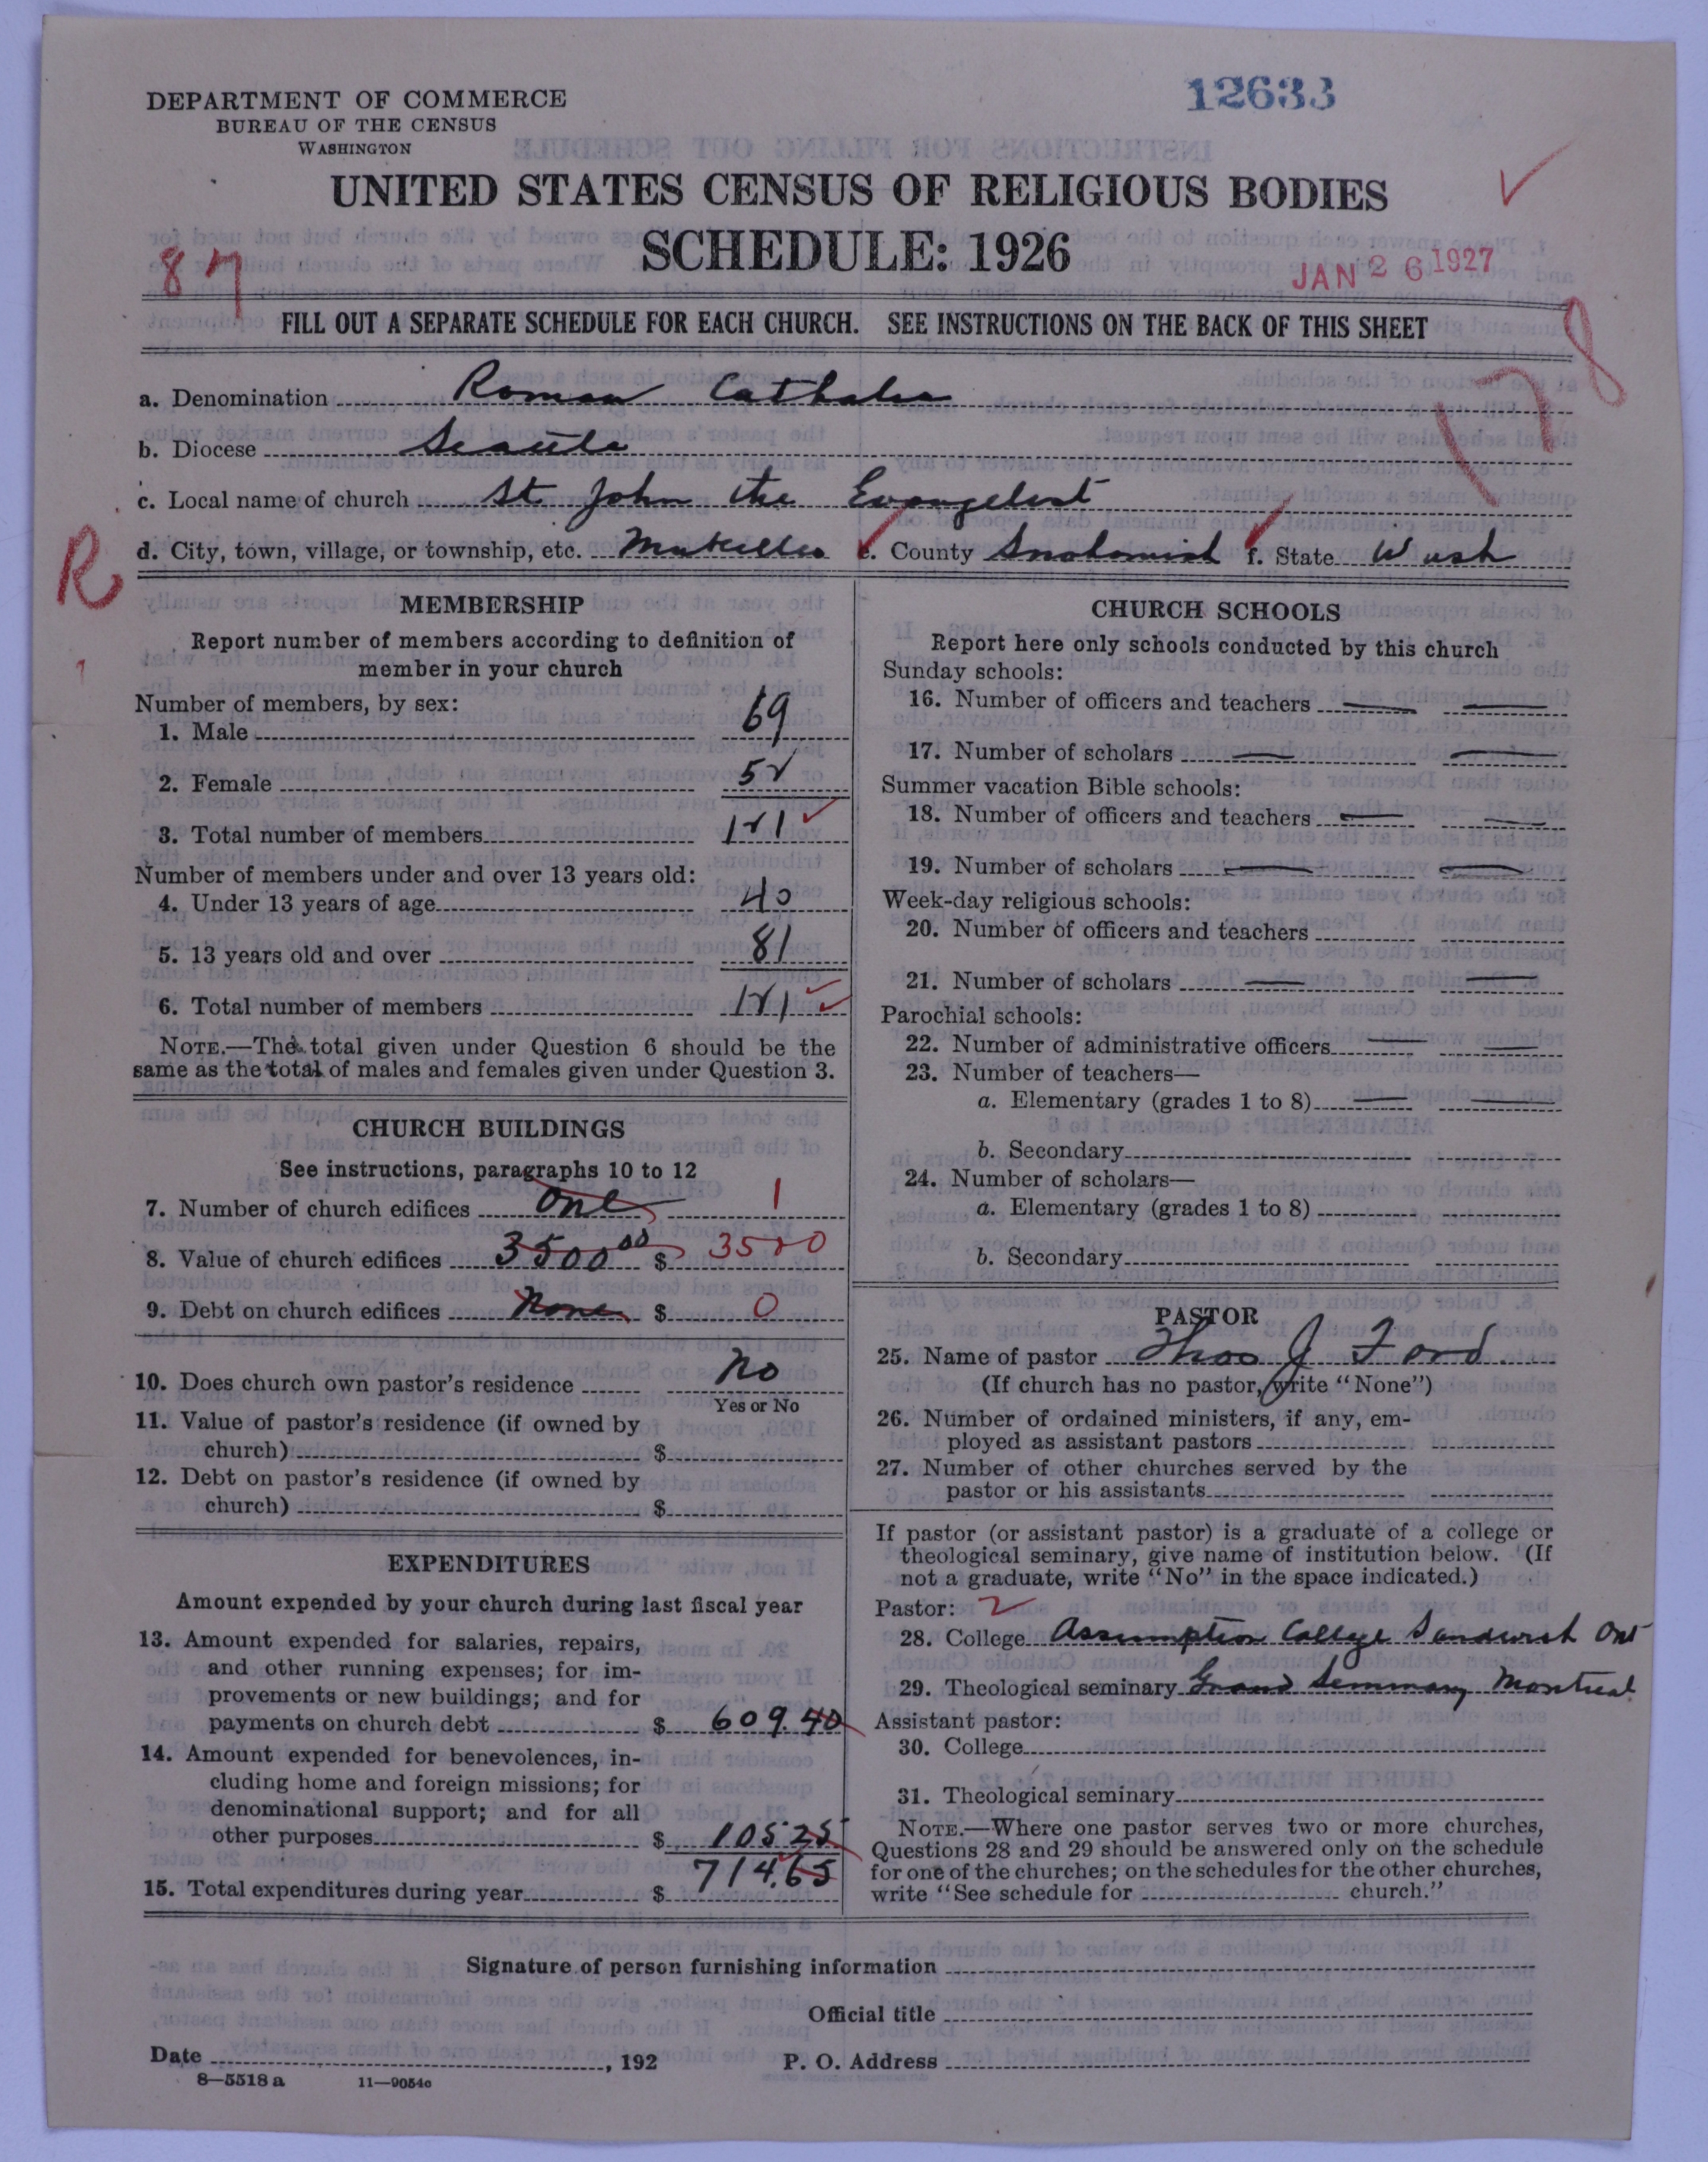 12633
DEPARTMENT OF COMMERCE
BUREAU OF THE CENSUS
WASHINGTON
UNITED STATES CENSUS OF RELIGIOUS BODIES
SCHEDULE: 1926
87
JAN 26 1927
FILL OUT A SEPARATE SCHEDULE FOR EACH CHURCH. SEE INSTRUCTIONS ON THE BACK OF THIS SHEET
178
a. Denomination Roman Catholic
b. Diocese Seattle
c. Local name of church St. John the Evangelist
d. City, town, village, or township, etc. Mukilteo e. County Snohomish f. State Wash
R
MEMBERSHIP
Report number of members according to definition of
member in your church
Number of members, by sex:
1. Male 69
2. Female 52
3. Total number of members 121
Number of members under and over 13 years old:
4. Under 13 years of age 40
5. 13 years old and over 81
6. Total number of members 121
NOTE.—The total given under Question 6 should be the
same as the total of males and females given under Question 3.
CHURCH BUILDINGS
See instructions, paragraphs 10 to 12
7. Number of church edifices one 1
8. Value of church edifices 3500.00 $ 3500
9. Debt on church edifices None $ 0
10. Does church own pastor's residence No
Yes or No
11. Value of pastor's residence (if owned by
church) $
12. Debt on pastor's residence (if owned by
church) $
EXPENDITURES
Amount expended by your church during last fiscal year
13. Amount expended for salaries, repairs,
and other running expenses; for im-
provements or new buildings; and for
payments on church debt $ 609.40
14. Amount expended for benevolences, in-
cluding home and foreign missions; for
denominational support; and for all
other purposes $ 105.25
15. Total expenditures during year $ 714.65
CHURCH SCHOOLS
Report here only schools conducted by this church
Sunday schools:
16. Number of officers and teachers
17. Number of scholars
Summer vacation Bible schools:
18. Number of officers and teachers
19. Number of scholars
Week-day religious schools:
20. Number of officers and teachers
21. Number of scholars
Parochial schools:
22. Number of administrative officers
23. Number of teachers—
a. Elementary (grades 1 to 8)
b. Secondary
24. Number of scholars—
a. Elementary (grades 1 to 8)
b. Secondary
PASTOR
25. Name of pastor Thos J Ford
(If church has no pastor, write "None")
26. Number of ordained ministers, if any, em-
ployed as assistant pastors
27. Number of other churches served by the
pastor or his assistants
If pastor (or assistant pastor) is a graduate of a college or
theological seminary, give name of institution below. (If
not a graduate, write "No" in the space indicated.)
Pastor: 2
28. College Assumption College Sandwich Ont
29. Theological seminary Grand Seminary Montreal
Assistant pastor:
30. College
31. Theological seminary
NOTE.—Where one pastor serves two or more churches,
Questions 28 and 29 should be answered only on the schedule
for one of the churches; on the schedules for the other churches,
write "See schedule for church."
Signature of person furnishing information
Official title
Date , 192 P. O. Address
8—5518 a 11—9054c